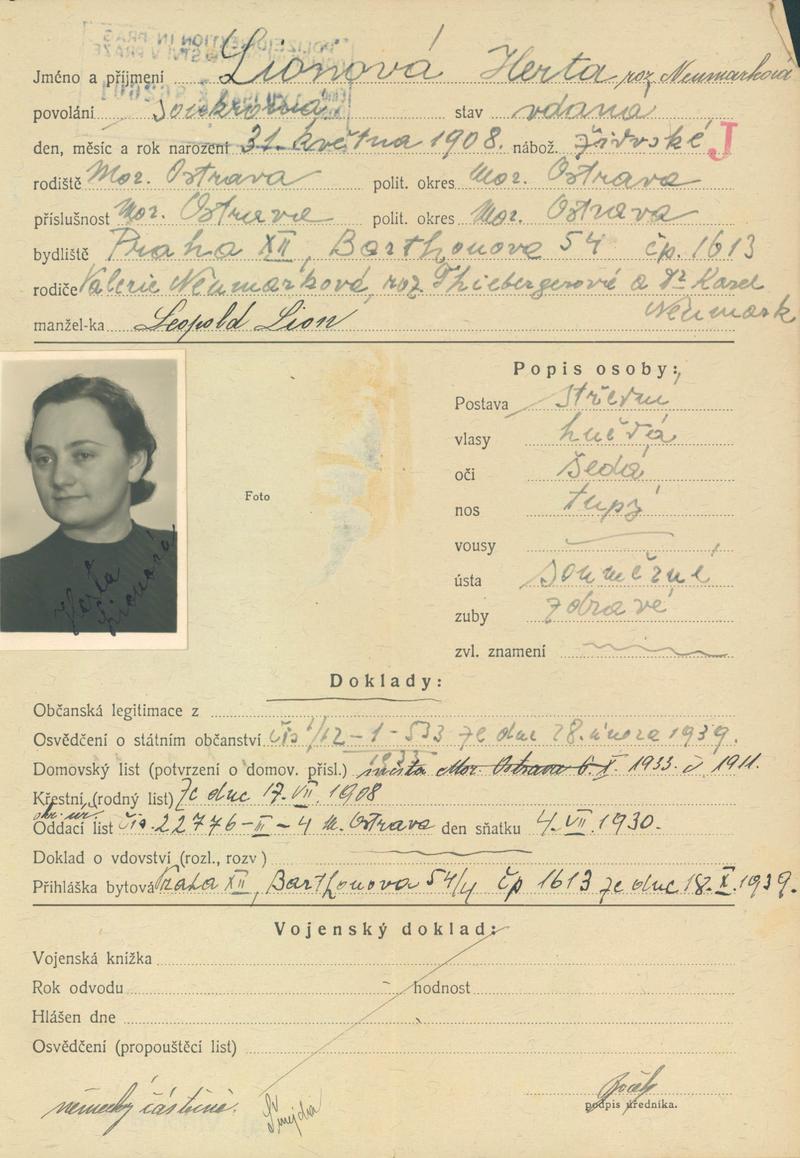 Jméno a příjmení Lionová Herta roz. Neumarková
povolání soukromá stav vdaná
den, měsíc a rok narození 31. května 1908. nábož. židovské J
rodiště Mor. Ostrava polit. okres Mor. Ostrava
příslušnost Mor. Ostrava polit. okres Mor. Ostrava
bydliště Praha XII, Barthonova 54 čp. 1613
rodiče Valerie Neumarková, roz. Thiebergerové a Dr Karel
Neumark
manžel-ka Leopold Lion
Popis osoby:
Postava střední
vlasy hnědá
oči šedá
Foto
nos tupý
vousy
ústa souměrné
zuby zdravé
zvl. znamení
Herta
Lionová
Doklady:
Občanská legitimace z
Osvědčení o státním občanství čís. 1/12-1-533 ze dne 28. února 1939.
Domovský list (potvrzení o domov. přísl.) města Mor. Ostrava 6. X. 1933. 1911.
Křestní (rodný list) ze dne 17. VII. 1908
Oddací list čís. 22776-III-4 M. Ostrava den sňatku 4. VII. 1930.
Doklad o vdovství (rozl., rozv )
Přihláška bytová Praha XII, Barthonova 54/4 čp 1613 ze dne 18. X. 1939.
Vojenský doklad:
Vojenská knížka
Rok odvodu hodnost
Hlášen dne
Osvědčení (propouštěcí list)
německy částečně.
podpis úředníka.